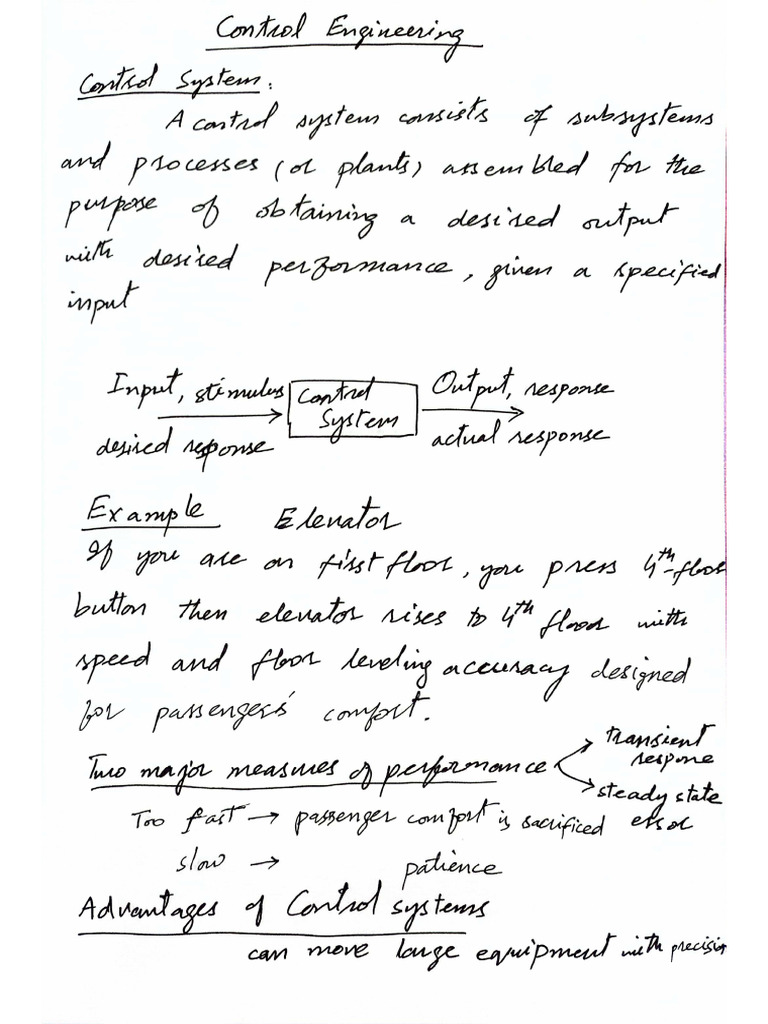 Control Engineering
Control System:
A control system consists of subsystems
and processes (or plants) assembled for the
purpose of obtaining a desired output
with desired performance, given a specified
input
Input, stimulus
desired response
Control
System
Output, response
actual response
Example Elevator
If you are on first floor, you press 4th floor
button then elevator rises to 4th floor with
speed and floor leveling accuracy designed
for passengers' comfort.
Two major measures of performance
transient
respone
steady state
error
Too fast → passenger comfort is sacrificed
slow → patience
Advantages of Control systems
can move large equipment with precision